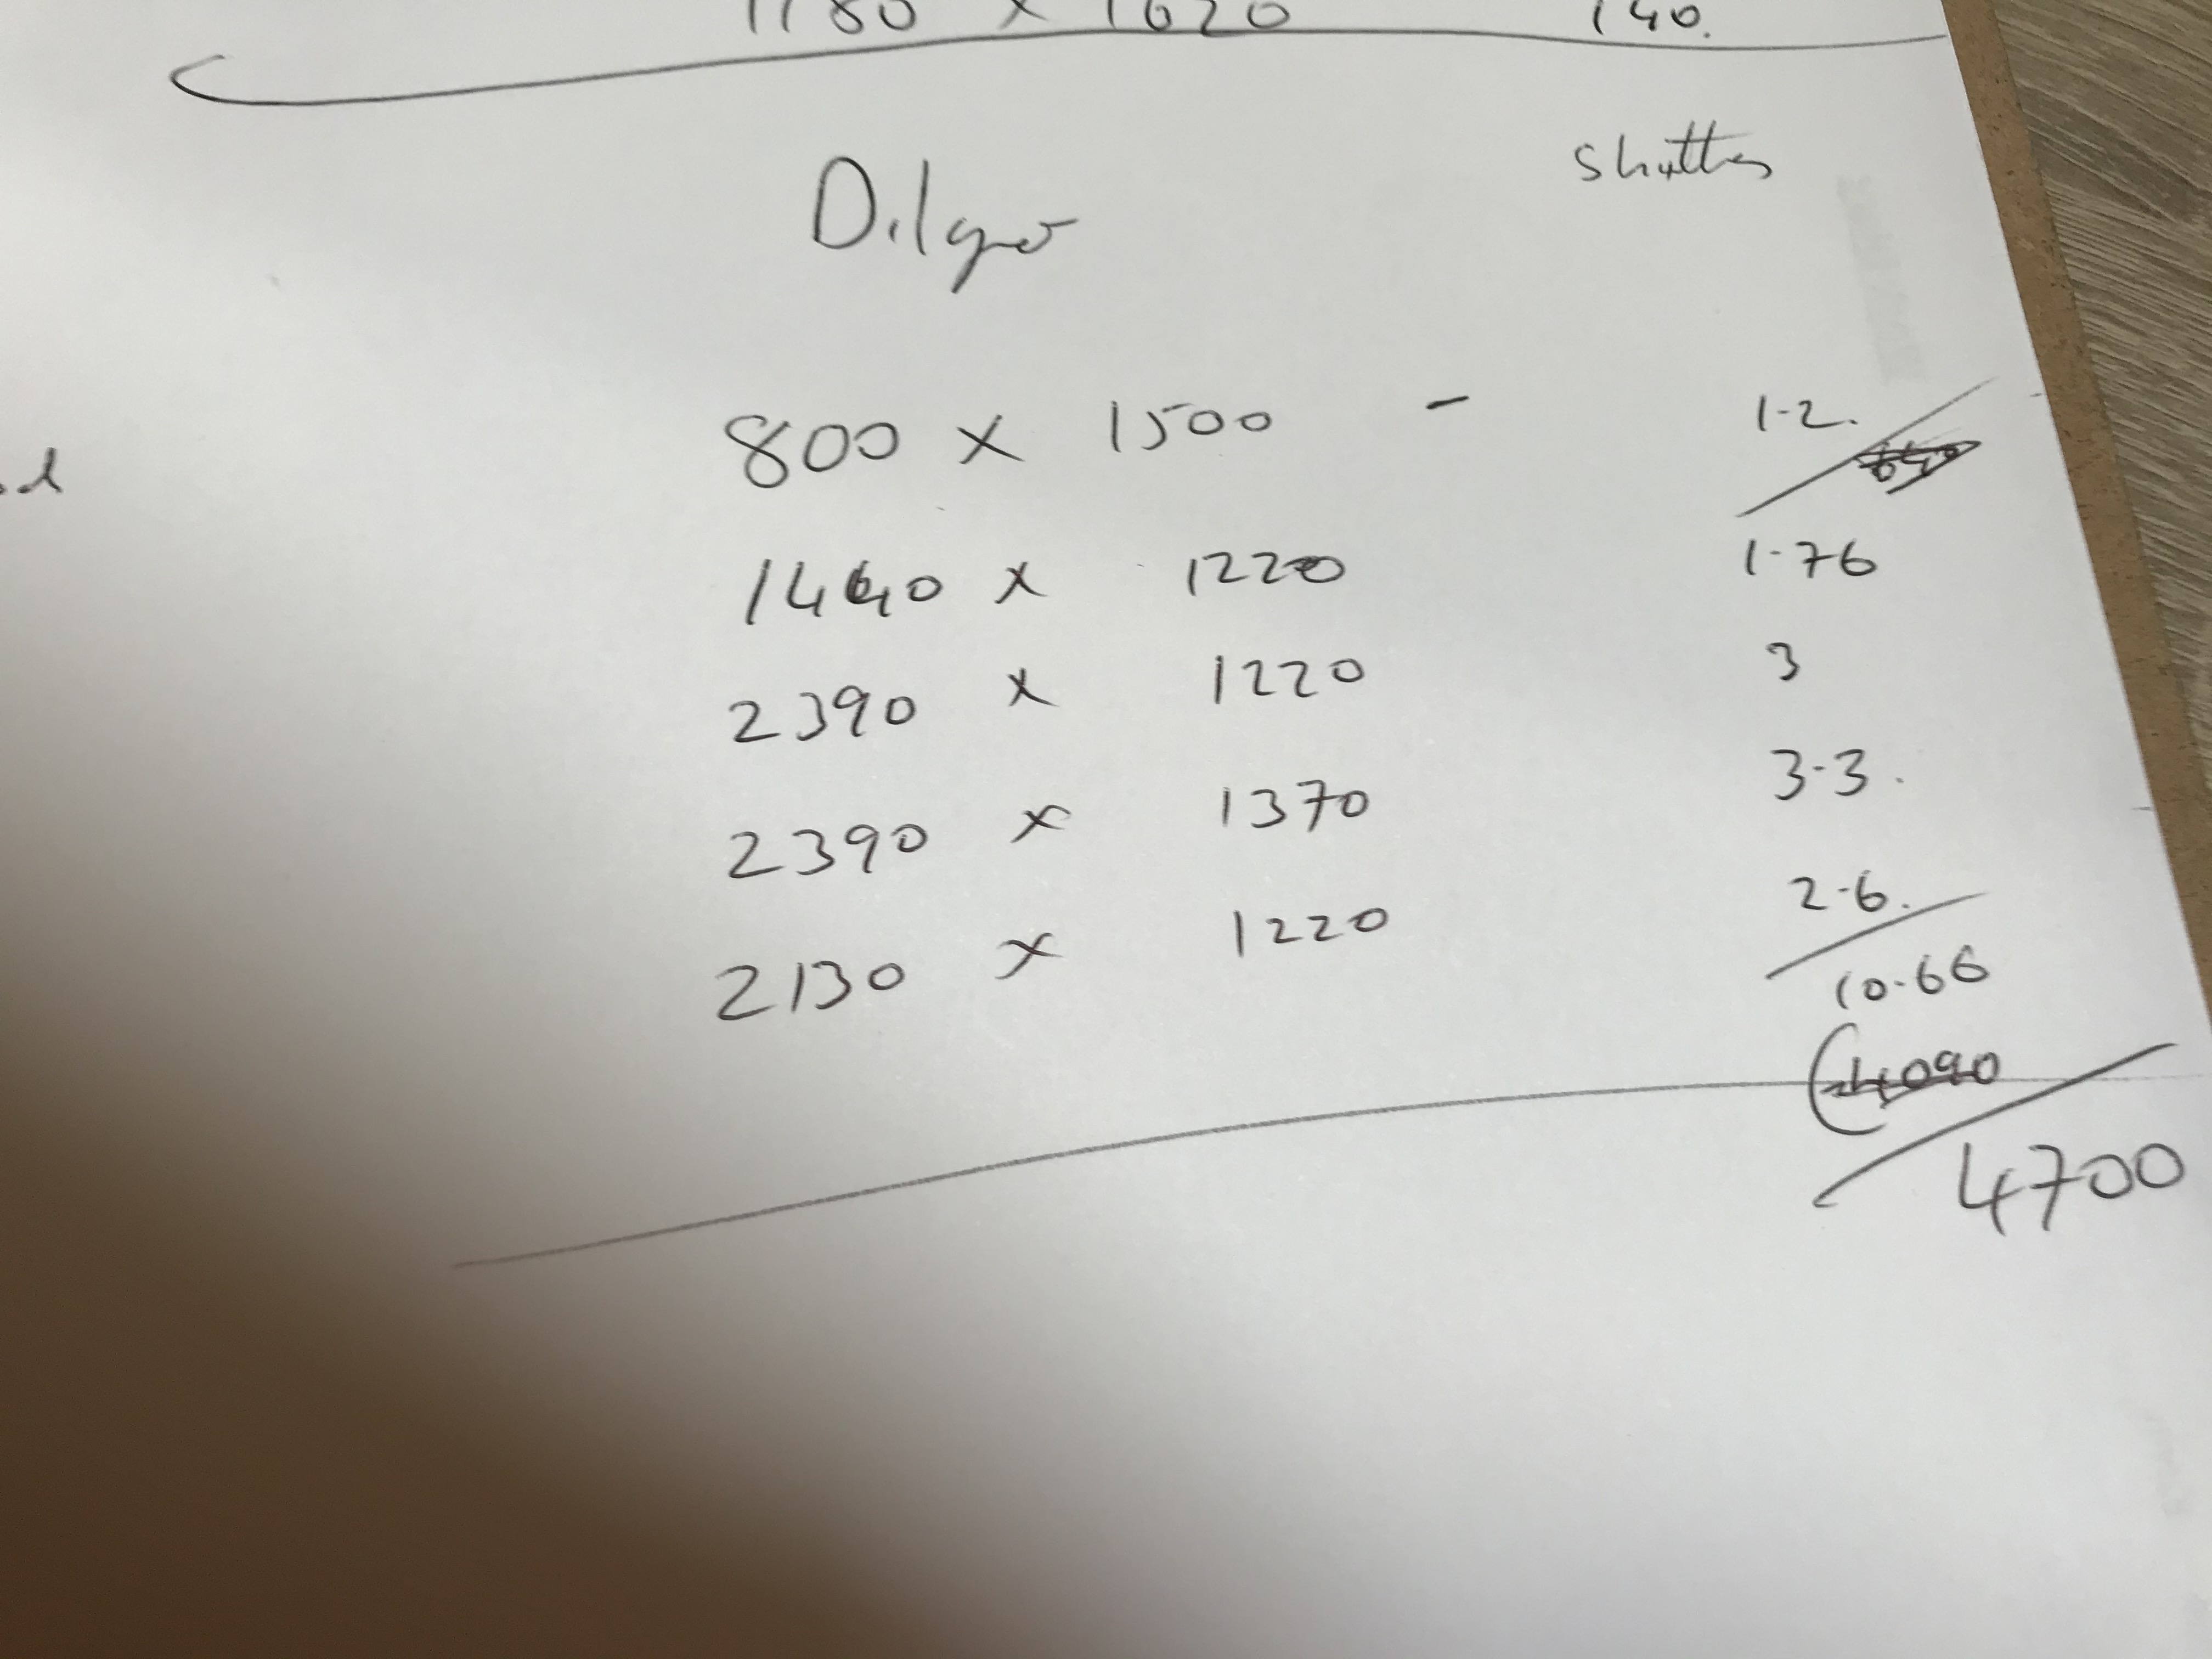 1180 x 1620 140.
shutters
800 x 1500 - 1.2.
1440 x 1220 1.76
2390 x 1220 3
2390 x 1370 3.3.
2130 x 1220 2.6.
10.66
4090
4700